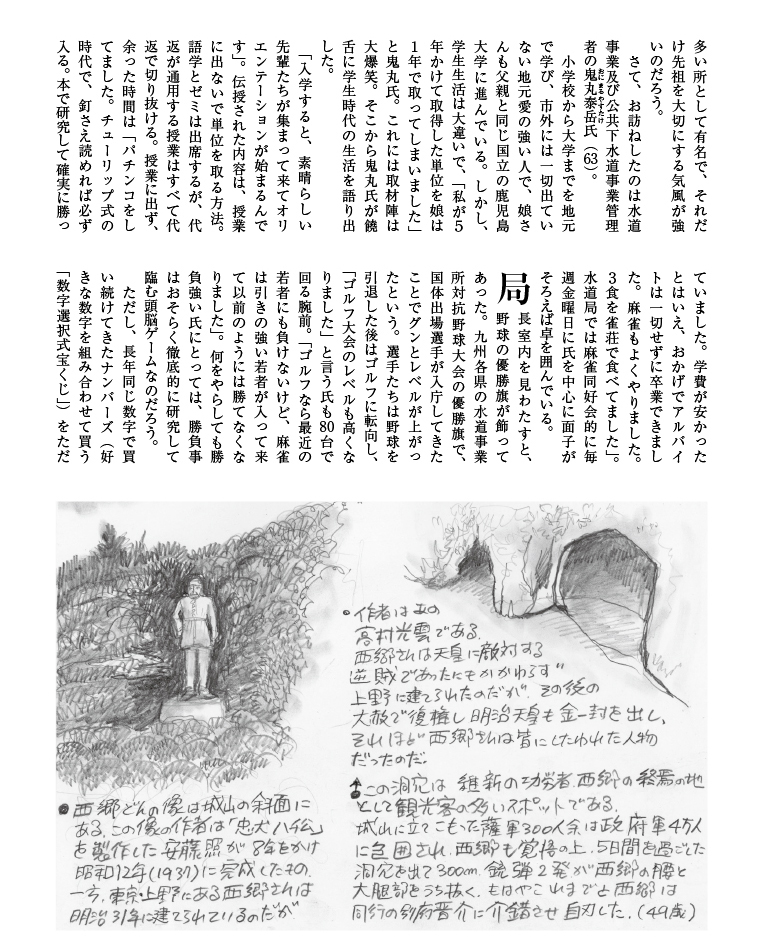 多い所として有名で、それだ
け先祖を大切にする気風が強
いのだろう。
さて、お訪ねしたのは水道
事業及び公共下水道事業管理
者の鬼丸泰岳氏（63）。
小学校から大学までを地元
で学び、市外には一切出てい
ない地元愛の強い人で、娘さ
んも父親と同じ国立の鹿児島
大学に進んでいる。しかし、
学生生活は大違いで、「私が５
年かけて取得した単位を娘は
１年で取ってしまいました」
と鬼丸氏。これには取材陣は
大爆笑。そこから鬼丸氏が饒
舌に学生時代の生活を語り出
した。
「入学すると、素晴らしい
先輩たちが集まって来てオリ
エンテーションが始まるんで
す」。伝授された内容は、授業
に出ないで単位を取る方法。
語学とゼミは出席するが、代
返が通用する授業はすべて代
返で切り抜ける。授業に出ず、
余った時間は「パチンコをし
てました。チューリップ式の
時代で、釘さえ読めれば必ず
入る。本で研究して確実に勝っ
ていました。学費が安かった
とはいえ、おかげでアルバイ
トは一切せずに卒業できまし
た。麻雀もよくやりました。
３食を雀荘で食べてました」。
水道局では麻雀同好会的に毎
週金曜日に氏を中心に面子が
そろえば卓を囲んでいる。
局長室内を見わたすと、
野球の優勝旗が飾って
あった。九州各県の水道事業
所対抗野球大会の優勝旗で、
国体出場選手が入庁してきた
ことでグンとレベルが上がっ
たという。選手たちは野球を
引退した後はゴルフに転向し、
「ゴルフ大会のレベルも高くな
りました」と言う氏も80台で
回る腕前。「ゴルフなら最近の
若者にも負けないけど、麻雀
は引きの強い若者が入って来
て以前のようには勝てなくな
りました」。何をやらしても勝
負強い氏にとっては、勝負事
はおそらく徹底的に研究して
臨む頭脳ゲームなのだろう。
ただし、長年同じ数字で買
い続けてきたナンバーズ（好
きな数字を組み合わせて買う
「数字選択式宝くじ」）をただ
●西郷どんの像は城山の斜面に
ある。この像の作者は「忠犬ハチ公」
を製作した安藤照が8年をかけ
昭和12年(1937)に完成したもの。
一方、東京・上野にある西郷さんは
明治31年に建てられているのだが
●作者はあの
高村光雲である。
西郷さんは天皇に敵対する
逆賊であったにもかかわらず
上野に建てられたのだが、その後の
大赦で復権し明治天皇も金一封を出し、
それほど西郷さんは皆にしたわれた人物
だったのだ。
↑この洞穴は 維新の功労者.西郷の終焉の地
として観光客の多いスポットである。
城山に立てこもった薩軍300人余は政府軍4万人
に包囲され、西郷も覚悟の上、5日間を過ごした
洞穴を出て300m. 銃弾2発が西郷の腰と
大腿部をうち抜く、もはやこれまでと西郷は
同行の別府晋介に介錯させ自刃した。(49歳)